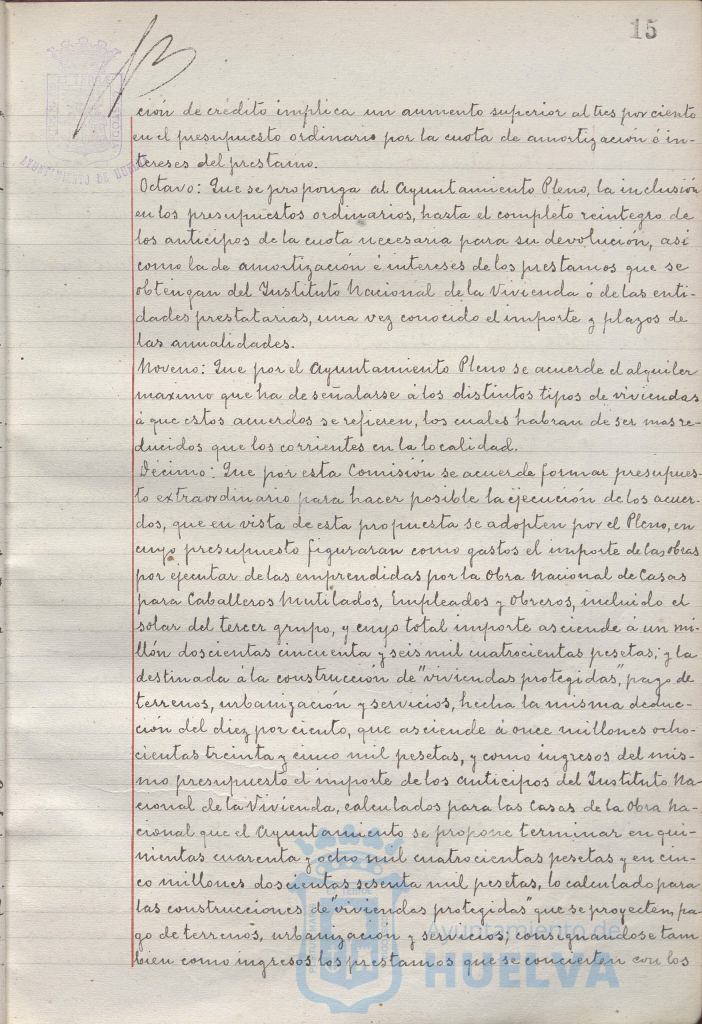 15
ción de crédito implica un aumento superior al tres por ciento
en el presupuesto ordinario por la cuota de amortización é in-
tereses del prestamo.
Octavo: Que se proponga al Ayuntamiento Pleno, la inclusión
en los presupuestos ordinarios, hasta el completo reintegro de
los anticipos de la cuota necesaria para su devolución, asi
como la de amortización é intereses de los prestamos que se
obtengan del Instituto Nacional de la Vivienda ó de las enti-
dades prestatarias, una vez conocido el importe y plazos de
las anualidades.
Noveno: Que por el Ayuntamiento Pleno se acuerde el alquiler
maximo que ha de señalarse á los distintos tipos de viviendas
á que estos acuerdos se refieren, los cuales habran de ser mas re-
ducidos que los corrientes en la localidad.
Décimo: Que por esta Comisión se acuerde formar presupues-
to extraordinario para hacer posible la ejecución de los acuer-
dos, que en vista de esta propuesta se adopten por el Pleno, en
cuyo presupuesto figuraran como gastos el importe de las obras
por ejecutar de las emprendidas por la Obra Nacional de Casas
para Caballeros Mutilados, Empleados y Obreros, incluido el
solar del tercer grupo, y cuyo total importe asciende á un mi-
llón doscientas cincuenta y seis mil cuatrocientas pesetas; y la
destinada á la construcción de "viviendas protegidas", pago de
terrenos, urbanización y servicios, hecha la misma deduc-
ción del diez por ciento, que asciende á once millones ocho-
cientas treinta y cinco mil pesetas, y como ingresos del mis-
mo presupuesto el importe de los anticipos del Instituto Na-
cional de la Vivienda, calculados para las casas de la Obra Na-
cional que el Ayuntamiento se propone terminar en qui-
nientas cuarenta y ocho mil cuatrocientas pesetas y en cin-
co millones doscientas sesenta mil pesetas, lo calculado para
las construcciones de "viviendas protegidas" que se proyecten, pa-
go de terrenos, urbanización y servicios; consignandose tam
bien como ingresos los prestamos que se concierten con los
Ayuntamiento de
HUELVA